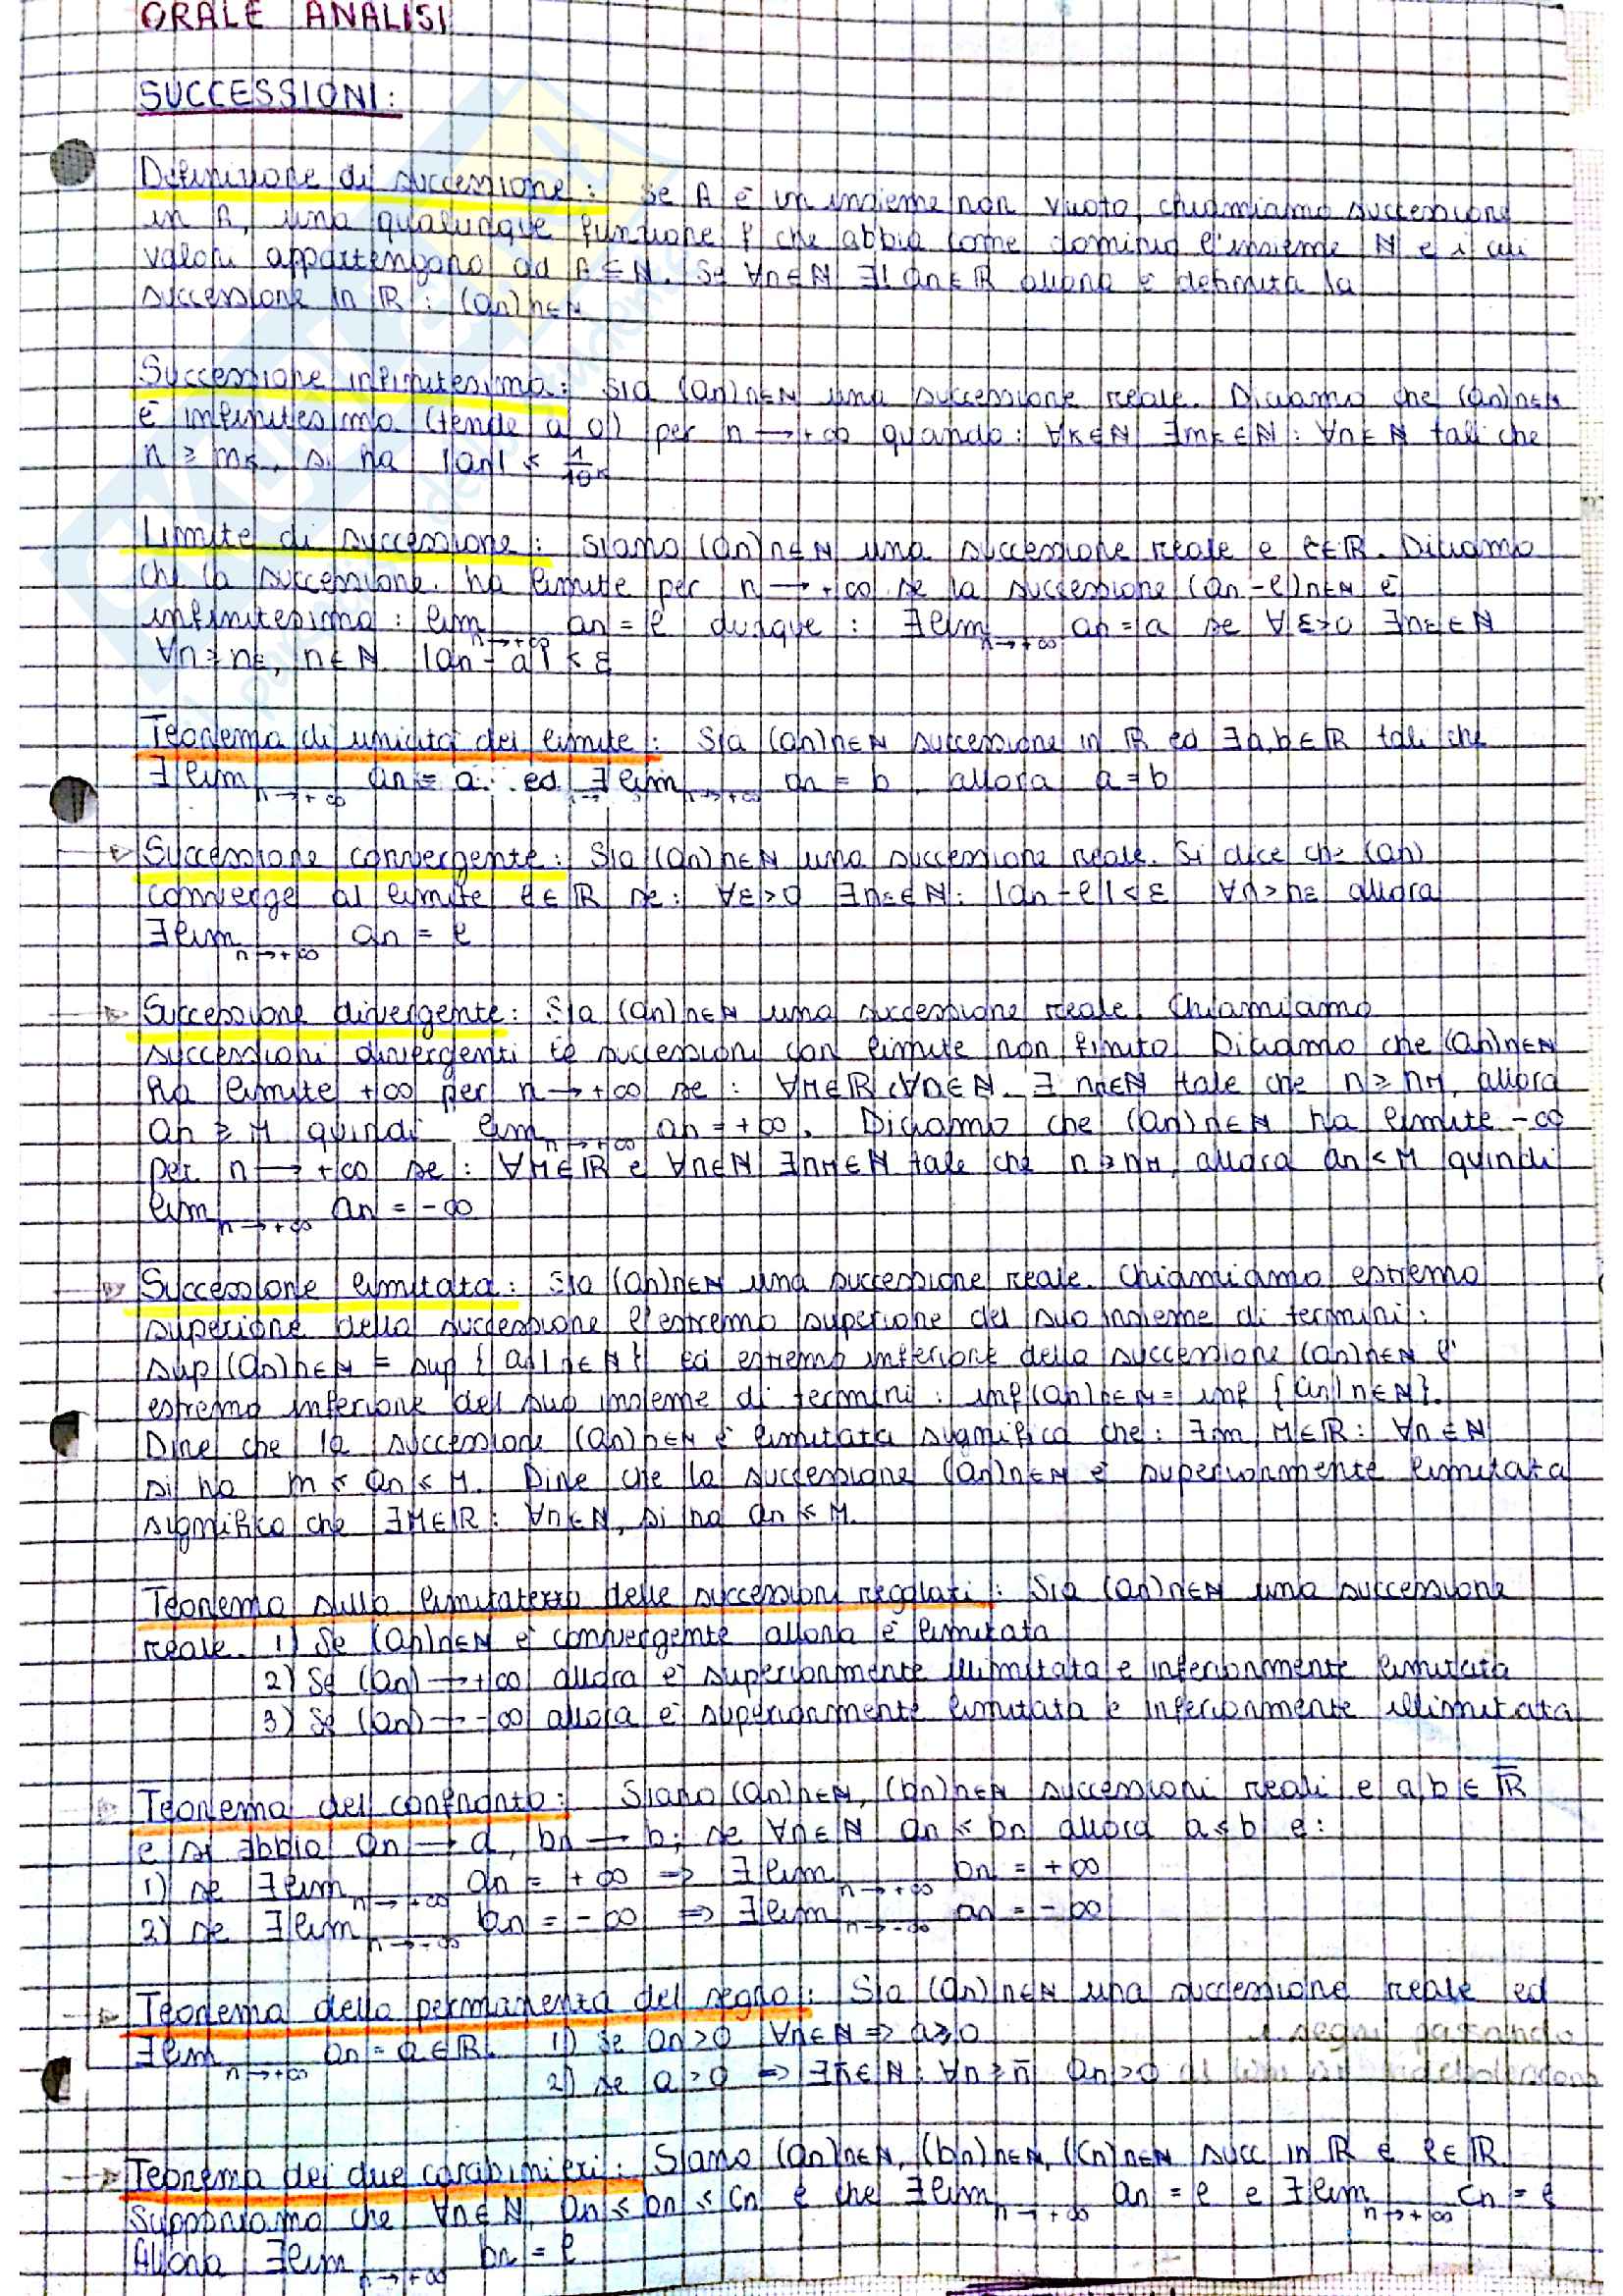 ORALE ANALISI
SUCCESSIONI:
Definizione di successione: Se A è un insieme non vuoto, chiamiamo successione
in A, una qualunque funzione f che abbia come dominio l'insieme ℕ e i cui
valori appartengono ad A ⊆ ℕ. Se ∀n∈ℕ ∃! an∈ℝ allora è definita la
successione in ℝ: (an)n∈ℕ
Successione infinitesima: Sia (an)n∈ℕ una successione reale. Diciamo che (an)n∈ℕ
è infinitesima (tende a 0) per n→+∞ quando: ∀k∈ℕ ∃mk∈ℕ: ∀n∈ℕ tali che
n ≥ mk, si ha |an| ≤ 1/10^k
Limite di successione: Siano (an)n∈ℕ una successione reale e ℓ∈ℝ. Diciamo
che la successione ha limite per n→+∞ se la successione (an-ℓ)n∈ℕ è
infinitesima: lim n→+∞ an = ℓ dunque: ∃lim n→+∞ an = a se ∀ε>0 ∃nε∈ℕ
∀n≥nε, n∈ℕ |an - a| < ε
Teorema di unicità del limite: Sia (an)n∈ℕ successione in ℝ ed ∃a,b∈ℝ tali che
∃lim n→+∞ an = a ed ∃lim n→+∞ an = b allora a = b
Successione convergente: Sia (an)n∈ℕ una successione reale. Si dice che (an)
converge al limite ℓ∈ℝ se: ∀ε>0 ∃nε∈ℕ: |an-ℓ|<ε ∀n>nε allora
∃lim n→+∞ an = ℓ
Successione divergente: Sia (an)n∈ℕ una successione reale. Chiamiamo
successioni divergenti le successioni con limite non finito. Diciamo che (an)n∈ℕ
ha limite +∞ per n→+∞ se: ∀M∈ℝ, ∀n∈ℕ. ∃ nM∈ℕ tale che n ≥ nM, allora
an ≥ M quindi lim n→+∞ an = +∞. Diciamo che (an)n∈ℕ ha limite -∞
per n→+∞ se: ∀M∈ℝ e ∀n∈ℕ ∃nM∈ℕ tale che n≥nM, allora an<M quindi
lim n→+∞ an = -∞
Successione limitata: Sia (an)n∈ℕ una successione reale. Chiamiamo estremo
superiore della successione l'estremo superiore del suo insieme di termini:
sup(an)n∈ℕ = sup{an|n∈ℕ} ed estremo inferiore della successione (an)n∈ℕ l'
estremo inferiore del suo insieme di termini: inf(an)n∈ℕ = inf{an|n∈ℕ}.
Dire che la successione (an)n∈ℕ è limitata significa che: ∃m, M∈ℝ: ∀n∈ℕ
si ha m ≤ an ≤ M. Dire che la successione (an)n∈ℕ è superiormente limitata
significa che ∃M∈ℝ: ∀n∈ℕ, si ha an ≤ M.
Teorema sulla limitatezza delle successioni regolari: Sia (an)n∈ℕ una successione
reale. 1) Se (an)n∈ℕ è convergente allora è limitata
2) Se (an)→+∞ allora è superiormente illimitata e inferiormente limitata
3) Se (an)→-∞ allora è superiormente limitata e inferiormente illimitata
Teorema del confronto: Siano (an)n∈ℕ, (bn)n∈ℕ successioni reali e a,b∈ℝ̅
e si abbia an→a, bn→b; se ∀n∈ℕ an ≤ bn allora a≤b e:
1) se ∃lim n→+∞ an = +∞ ⇒ ∃lim n→+∞ bn = +∞
2) se ∃lim n→-∞ bn = -∞ ⇒ ∃lim n→-∞ an = -∞
Teorema della permanenza del segno: Sia (an)n∈ℕ una successione reale ed
∃lim n→+∞ an = a∈ℝ. 1) Se an>0 ∀n∈ℕ ⇒ a≥0 i segni passando
2) se a>0 ⇒ ∃n̅∈ℕ: ∀n≥n̅ an>0 al
Teorema dei due carabinieri: Siano (an)n∈ℕ, (bn)n∈ℕ, (cn)n∈ℕ succ in ℝ e ℓ∈ℝ.
Supponiamo che ∀n∈ℕ, an ≤ bn ≤ cn e che ∃lim n→+∞ an = ℓ e ∃lim n→+∞ cn = ℓ
Allora ∃lim n→+∞ bn = ℓ